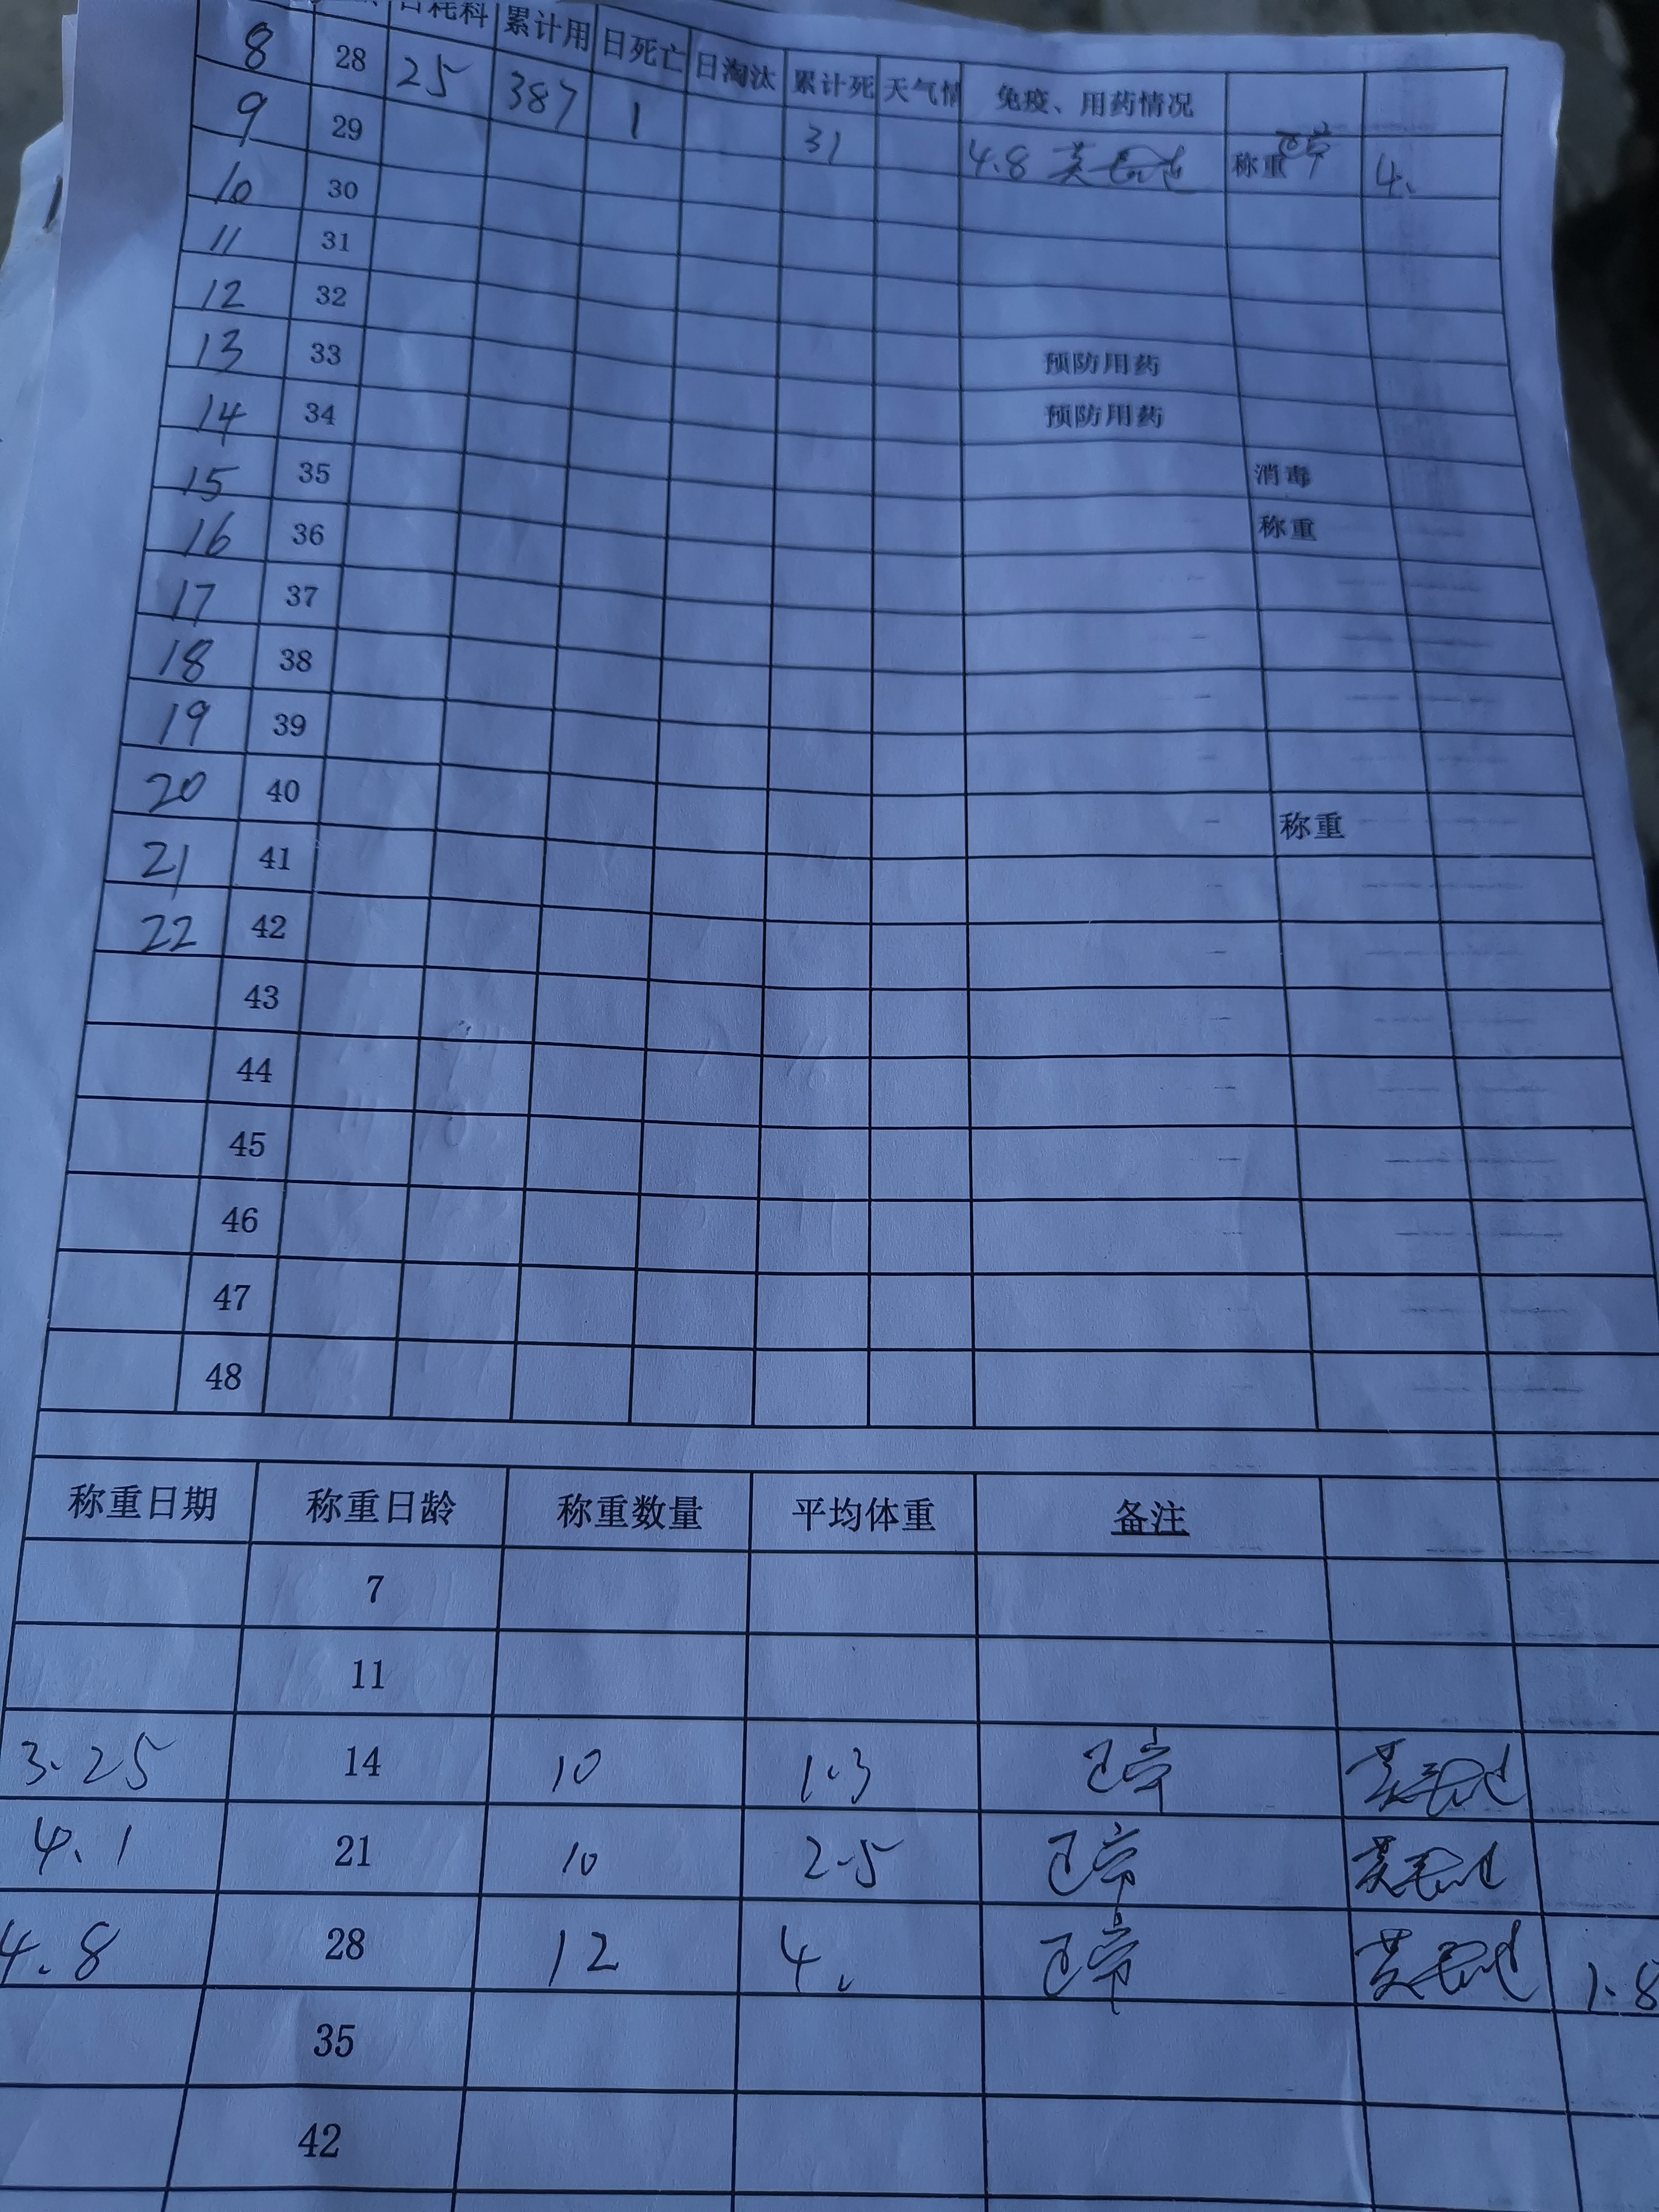 日耗料 累计用 日死亡 日淘汰 累计死 天气情 免疫、用药情况
8 28 25 387 1 31 4.8 称重 正常 4.
9 29
10 30
11 31
12 32
13 33 预防用药
14 34 预防用药
15 35 消毒
16 36 称重
17 37
18 38
19 39
20 40 称重
21 41
22 42
43
44
45
46
47
48
称重日期 称重日龄 称重数量 平均体重 备注
7
11
3.25 14 10 1.3 正常
4.1 21 10 2.5 正常
4.8 28 12 4. 正常 1.8
35
42